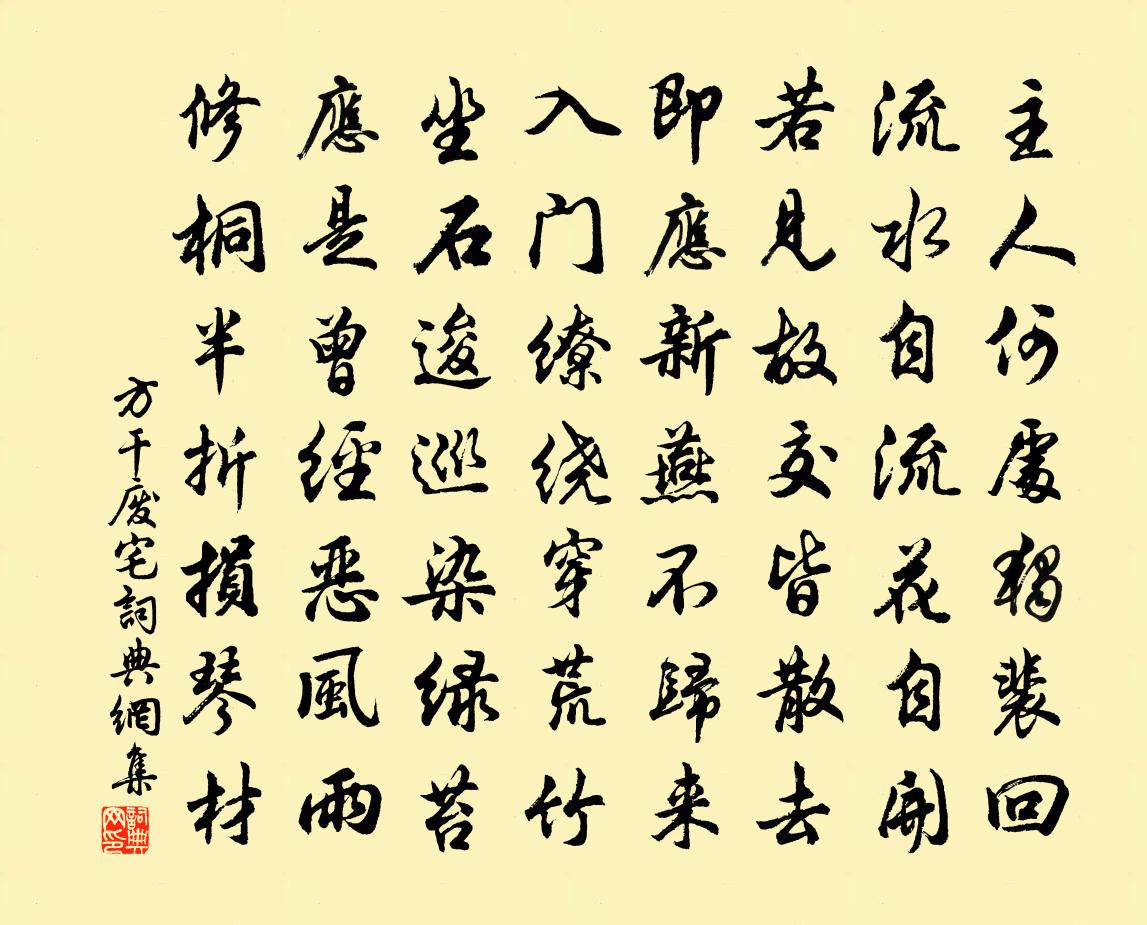 主人何處獨裴回
流水自流花自開
若見故交皆散去
即應新燕不歸来
入门缭绕穿荒竹
坐石逡巡染绿苔
應是曾經惡風雨
修桐半折損琴材
方干廢宅詞典網集
詞典网印